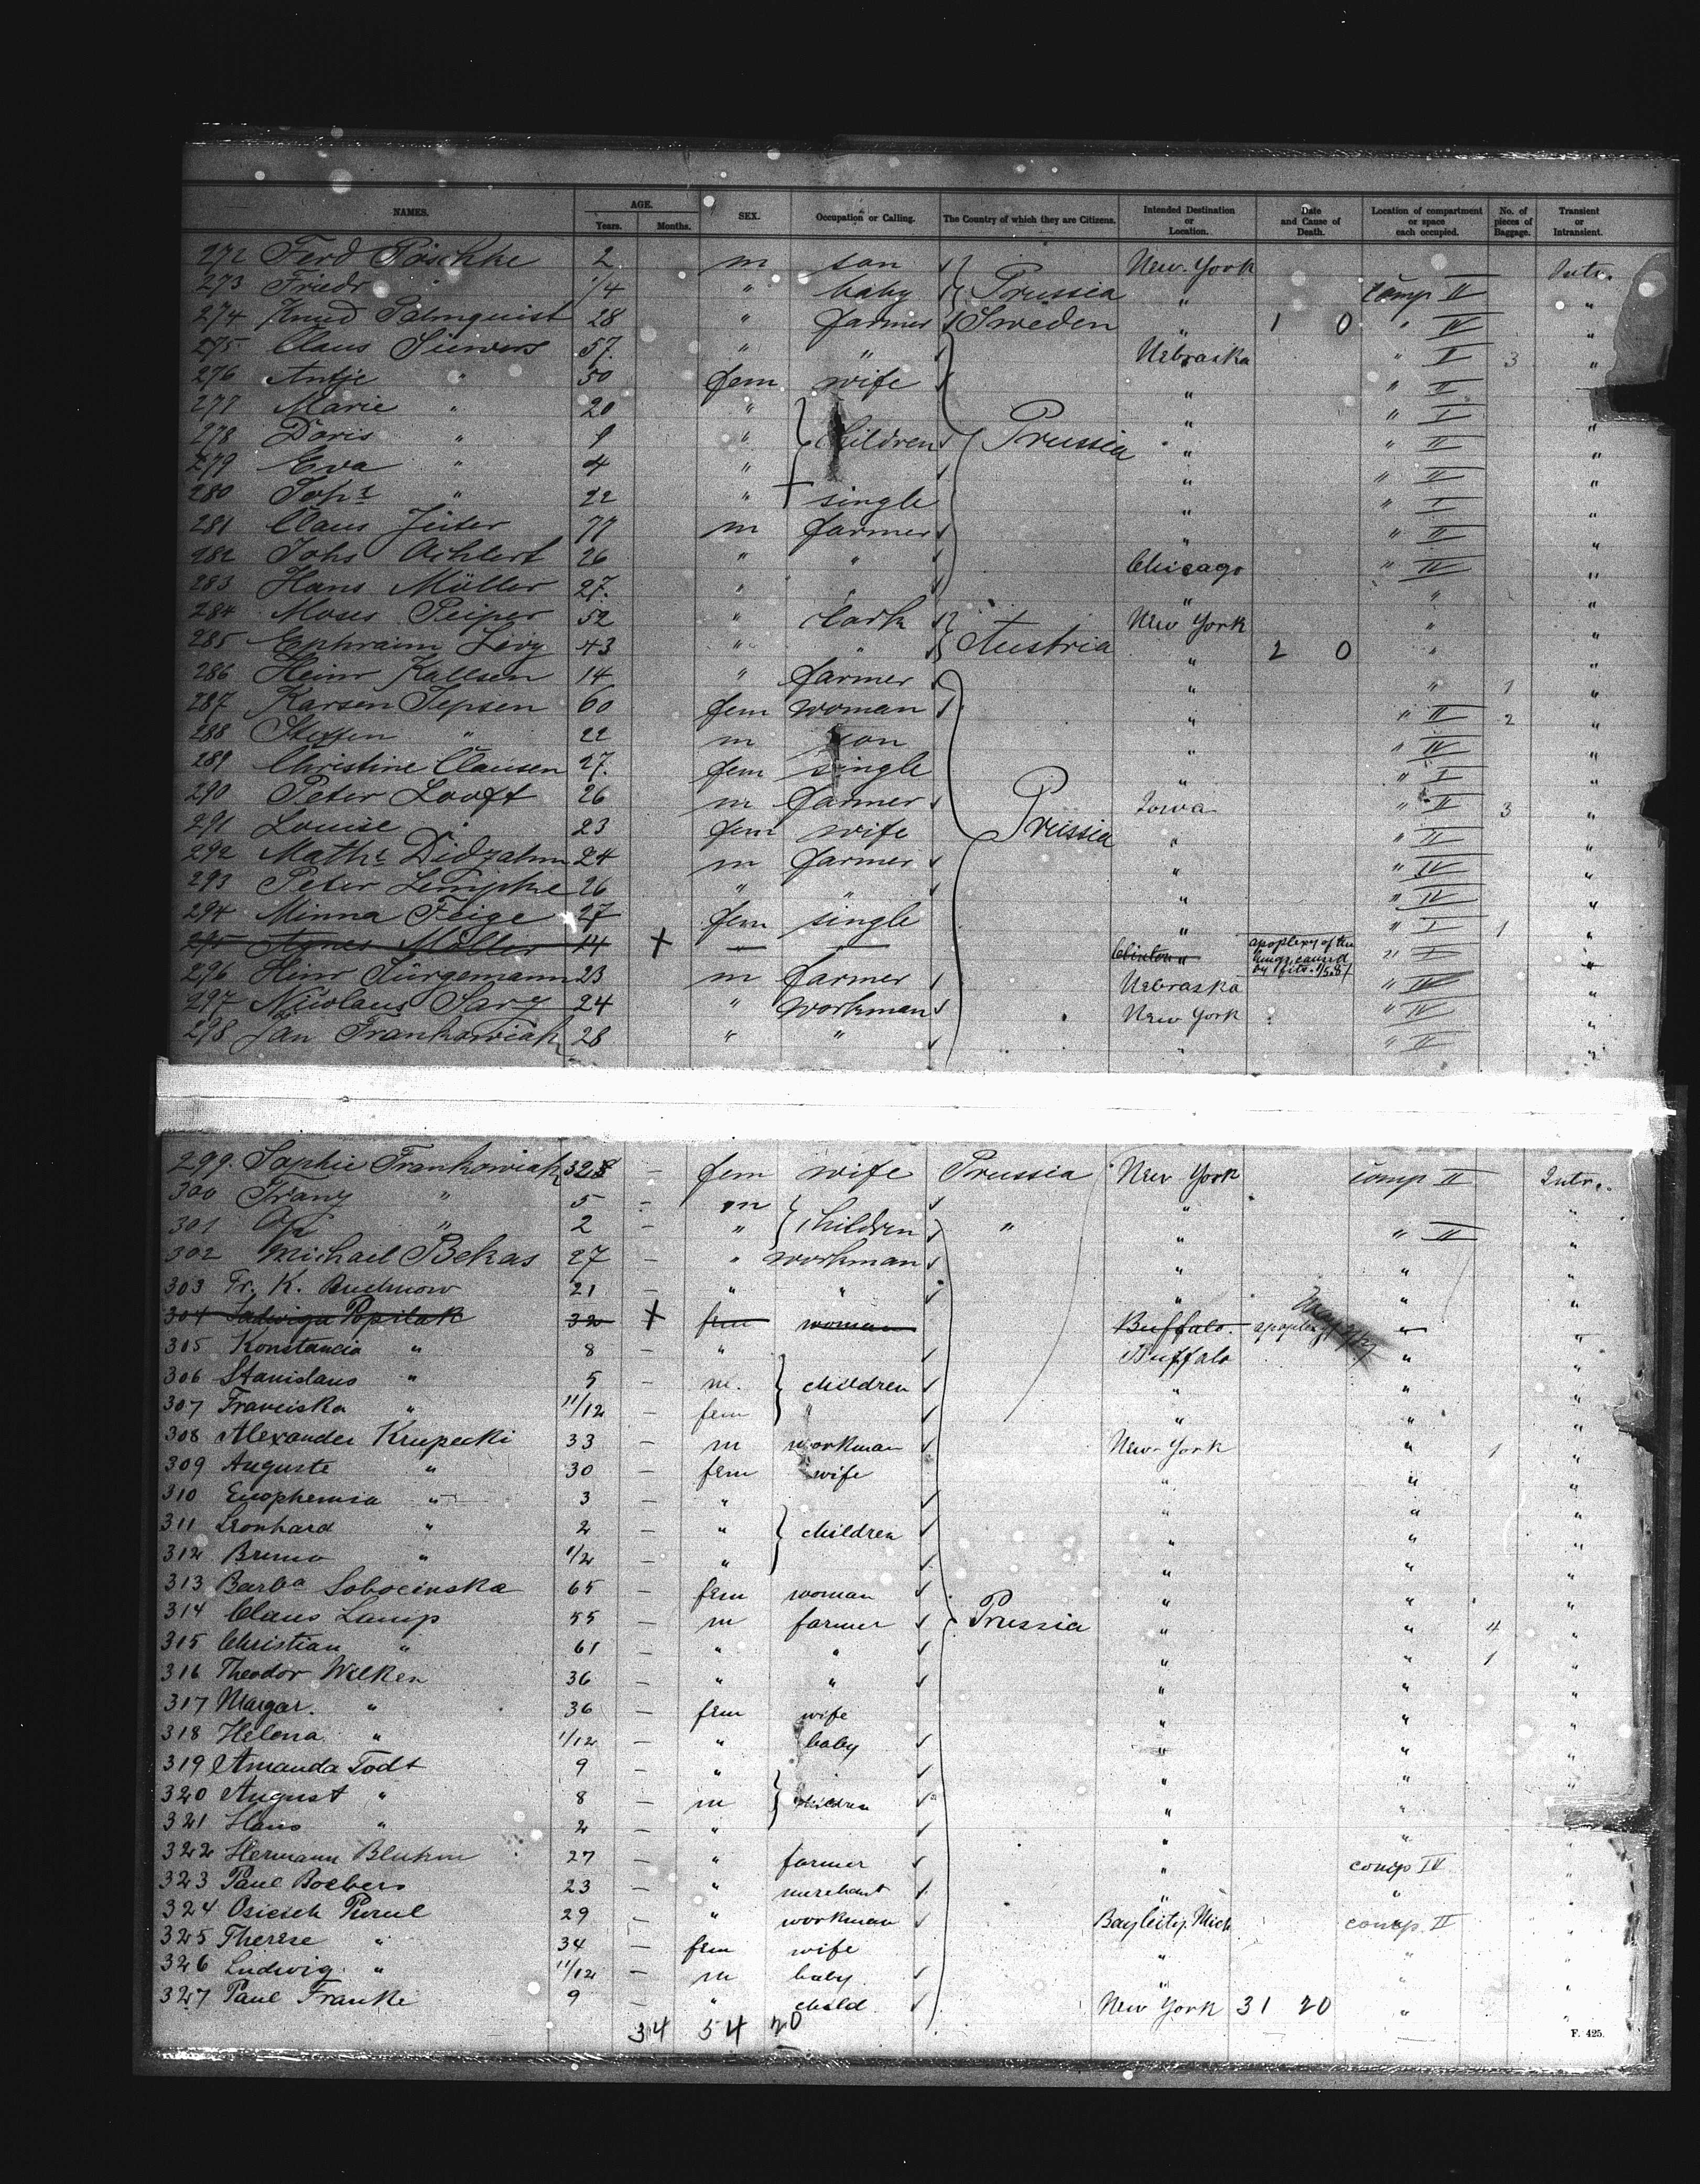 NAMES. AGE. Years. Months. SEX. Occupation or Calling. The Country of which they are Citizens. Intended Destination or Location. Date and Cause of Death. Location of compartment or space each occupied. No. of pieces of Baggage. Transient or Intransient.
272 Ferd Pöschke 2 m son New-York Intr.
273 Friedr " 1/4 " baby Prussia " Comp II "
274 Knud Palmquist 28 " farmer Sweden " 1 0 " IV "
275 Claus 57. " " Nebraska " I 3 "
276 Antje " 50 fem wife " " II "
277 Marie " 20 " " " I "
278 Doris " 9 " children Prussia " " II "
279 Eva " 4 " " " II "
280 " 22 " single " " I "
281 Claus 77 m farmer " " II "
282 Johs 26 " " Chicago " IV "
283 Hans Müller 27. " " " " "
284 Moses Peiper 52 " Clark New York " "
285 Ephraim Levy 43 " " Austria " 2 0 " "
286 Heinr Kallsen 14 " farmer " " 1 "
287 Karsen Jepsen 60 fem woman " " II 2 "
288 Steffen " 22 m son " " IV "
289 Christine Clausen 27. fem single " " I "
290 Peter Looft 26 m farmer Iowa " II 3 "
291 Louise " 23 fem wife Prussia " " II "
292 Maths Didzahn 24 m farmer " " IV "
293 Peter Lempke 26 " " " " IV "
294 Minna Feige 27 fem single " " I 1 "
295 Agnes Möller 14 + — — Clinton " apoplexy of the lungs caused by fits " I "
296 Heinr Jürgemann 23 m farmer Nebraska " IV "
297 Nicolaus Sary 24 " workman New York " IV "
298 Jan Frankowiak 28 " " " " II "
299. Sophie Frankowiak 328 — fem wife Prussia New York comp II Intr.
300 Franz " 5 — m "
301 " 2 — " children " " " II "
302 Michael Bekas 27 — " workman " " "
303 Fr. K. 21 — " " " " "
304 Jadwiga Popilak 32 + fem woman Buffalo. apoplexy " "
305 Konstancia " 8 — " Buffalo " "
306 Stanislaus " 5 — m. children " " "
307 Franciska " 11/12 — fem " " " "
308 Alexander Krupecki 33 — m workman New-York " 1 "
309 Auguste " 30 — fem wife " " "
310 Euophemia " 3 — " " " "
311 Leonhard " 2 — " children " " "
312 Bruno " 1/2 — " " " "
313 Barba Sobocinska 65 — fem woman " " "
314 Claus Lamp 55 — m farmer Prussia " " 4 "
315 Christian " 61 — " " " 1 "
316 Theodor Wilken 36 — " " " " "
317 Margar. " 36 — fem wife " " "
318 Helena " 11/12 — " baby " " "
319 Amanda Todt 9 — " " " "
320 August " 8 — m children " " "
321 Hans " 2 — " " " "
322 Hermann 27 — " farmer " comp IV "
323 Paul Boebers 23 — " merchant " " "
324 29 — " workman Baycity. Mich comp. II "
325 Therese " 34 — fem wife " " "
326 Ludwig. " 11/12 — m baby " " "
327 Paul Franke 9 — " child New York 31 20 "
34 54 20
F. 425.